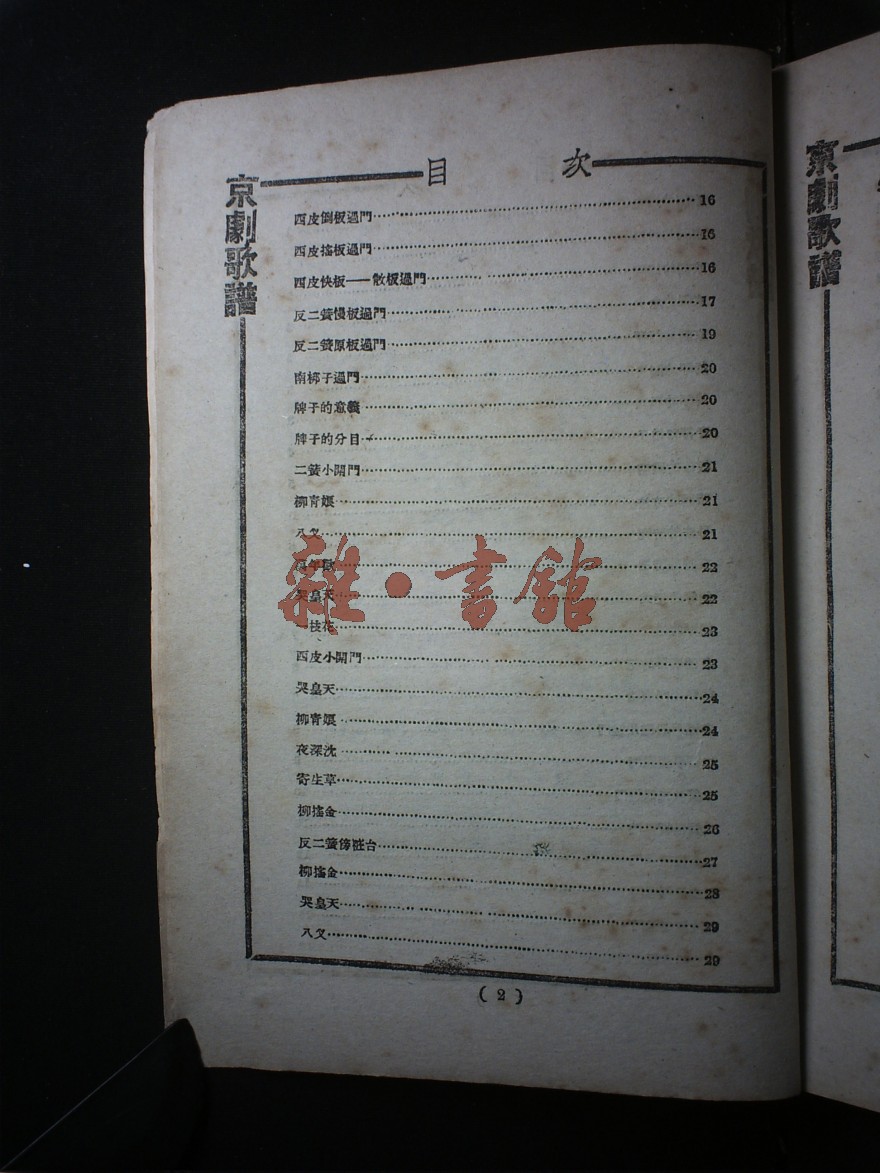 京劇歌譜
目 次
西皮倒板過門 16
西皮搖板過門 16
西皮快板——散板過門 16
反二簧慢板過門 17
反二簧原板過門 19
南梆子過門 20
牌子的意義 20
牌子的分目 20
二簧小開門 21
柳青娘 21
八叉 21
萬年歡 22
哭皇天 22
一枝花 23
西皮小開門 23
哭皇天 24
柳青娘 24
夜深沈 25
寄生草 25
柳搖金 26
反二簧傍粧台 27
柳搖金 28
哭皇天 29
八叉 29
( 2 )
雜·書館
京劇歌譜